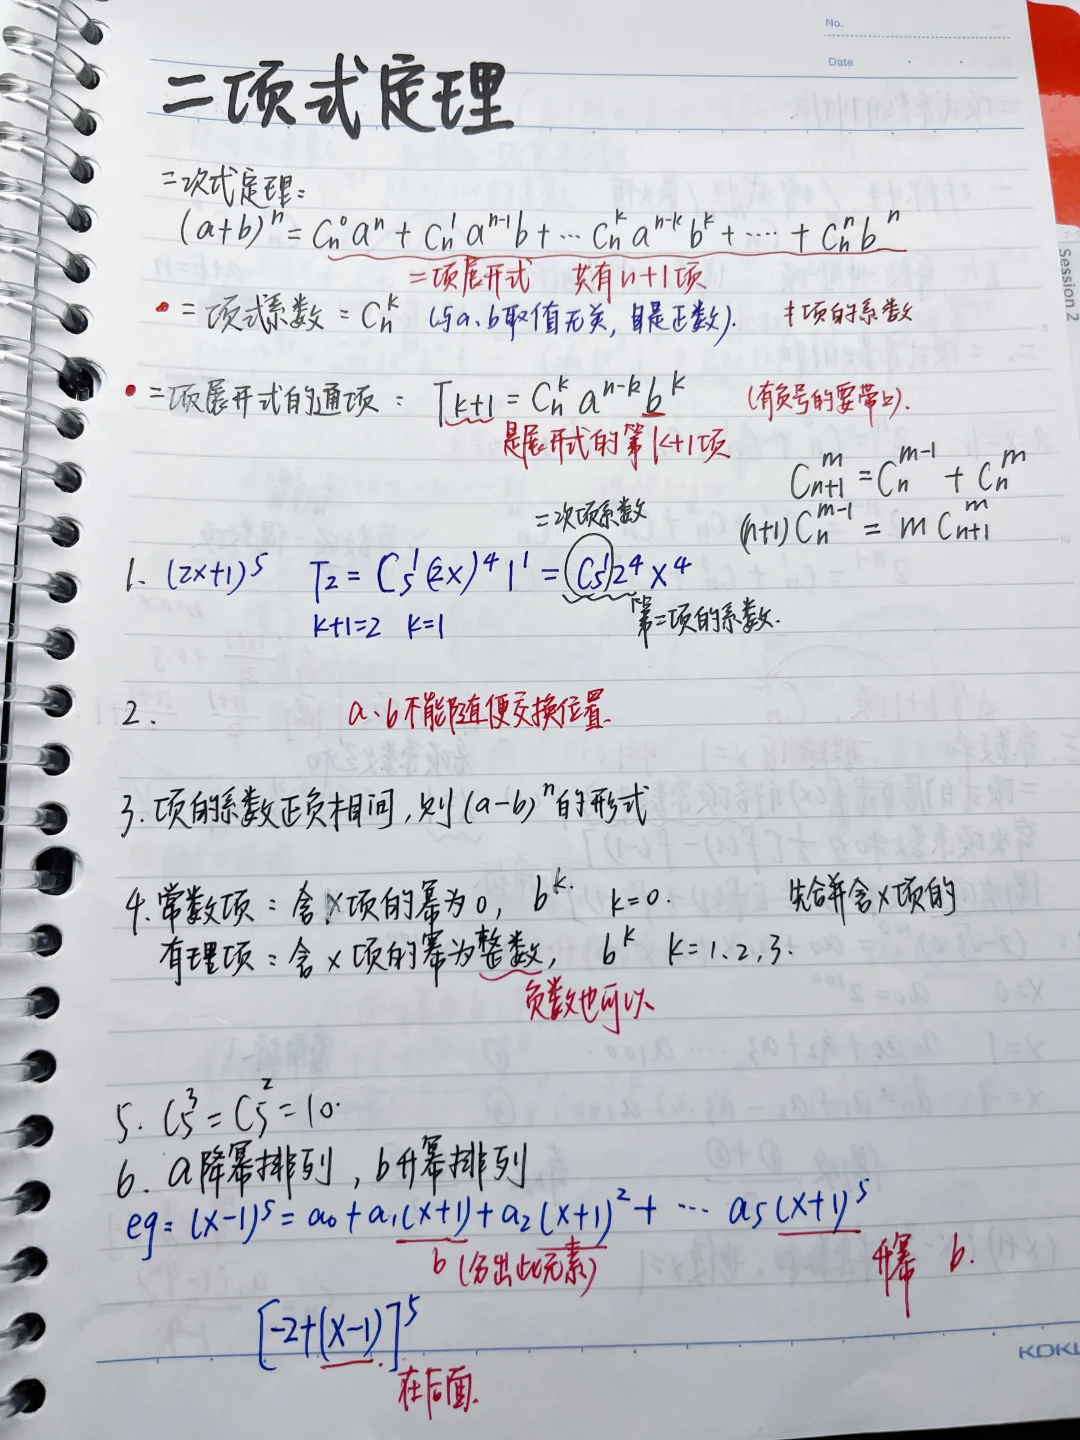 No.
Date
二项式定理
二次式定理:
(a+b)ⁿ = Cₙ⁰aⁿ + Cₙ¹aⁿ⁻¹b + … Cₙᵏaⁿ⁻ᵏbᵏ + …… + Cₙⁿbⁿ
二项展开式 共有n+1项
• 二项式系数 = Cₙᵏ (与a、b取值无关, 自是正数). 才项的系数
• 二项展开式的通项: Tₖ₊₁ = Cₙᵏ aⁿ⁻ᵏ bᵏ (有负号的要带上).
是展开式的第k+1项
Cₙ₊₁ᵐ = Cₙᵐ⁻¹ + Cₙᵐ
(n+1)Cₙᵐ⁻¹ = m Cₙ₊₁ᵐ
二次项系数
1. (2x+1)⁵ T₂ = C₅¹(2x)⁴1¹ = C₅¹2⁴x⁴
k+1=2 k=1 第二项的系数.
2. a、b不能随便交换位置.
3. 项的系数正负相间, 则(a-b)ⁿ的形式
4. 常数项: 含x项的幂为0, bᵏ. k=0. 先合并含x项的
有理项: 含x项的幂为整数, bᵏ k=1、2、3.
负数也可以
5. C₅³ = C₅² = 10.
6. a降幂排列, b升幂排列
eg: (x-1)⁵ = a₀ + a₁(x+1) + a₂(x+1)² + … a₅(x+1)⁵
b (分出此元素) 升幂 b.
[-2+(x-1)]⁵
在后面.
Session 2